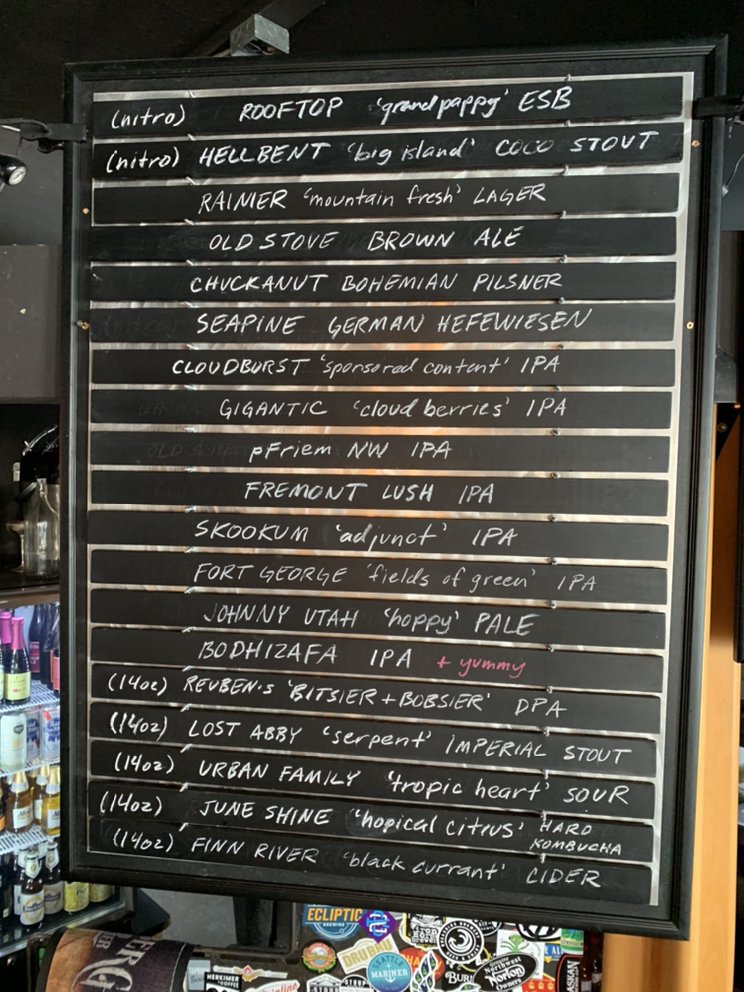 (nitro) ROOFTOP 'grandpappy' ESB
(nitro) HELLBENT 'big island' COCO STOUT
RAINIER 'mountain fresh' LAGER
OLD STOVE BROWN ALE
CHUCKANUT BOHEMIAN PILSNER
SEAPINE GERMAN HEFEWIESEN
CLOUDBURST 'sponsored content' IPA
GIGANTIC 'cloud berries' IPA
pFriem NW IPA
FREMONT LUSH IPA
SKOOKUM 'adjunct' IPA
FORT GEORGE 'fields of green' IPA
JOHNNY UTAH 'hoppy' PALE
BODHIZAFA IPA + yummy
(14oz) REUBEN'S 'BITSIER + BOBSIER' DPA
(14oz) LOST ABBY 'serpent' IMPERIAL STOUT
(14oz) URBAN FAMILY 'tropic heart' SOUR
(14oz) JUNE SHINE 'hopical citrus' HARD KOMBUCHA
(14oz) FINN RIVER 'black currant' CIDER
ECLIPTIC
BREWING
SEATTLE
MARINER
Northwest
Norton
HERKIMER
COFFEE